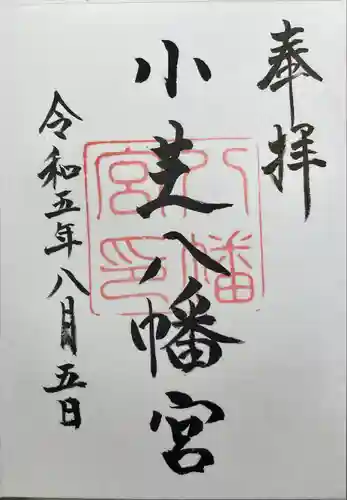 奉拝
小芝八幡宮
八幡
宮印
令和五年八月五日